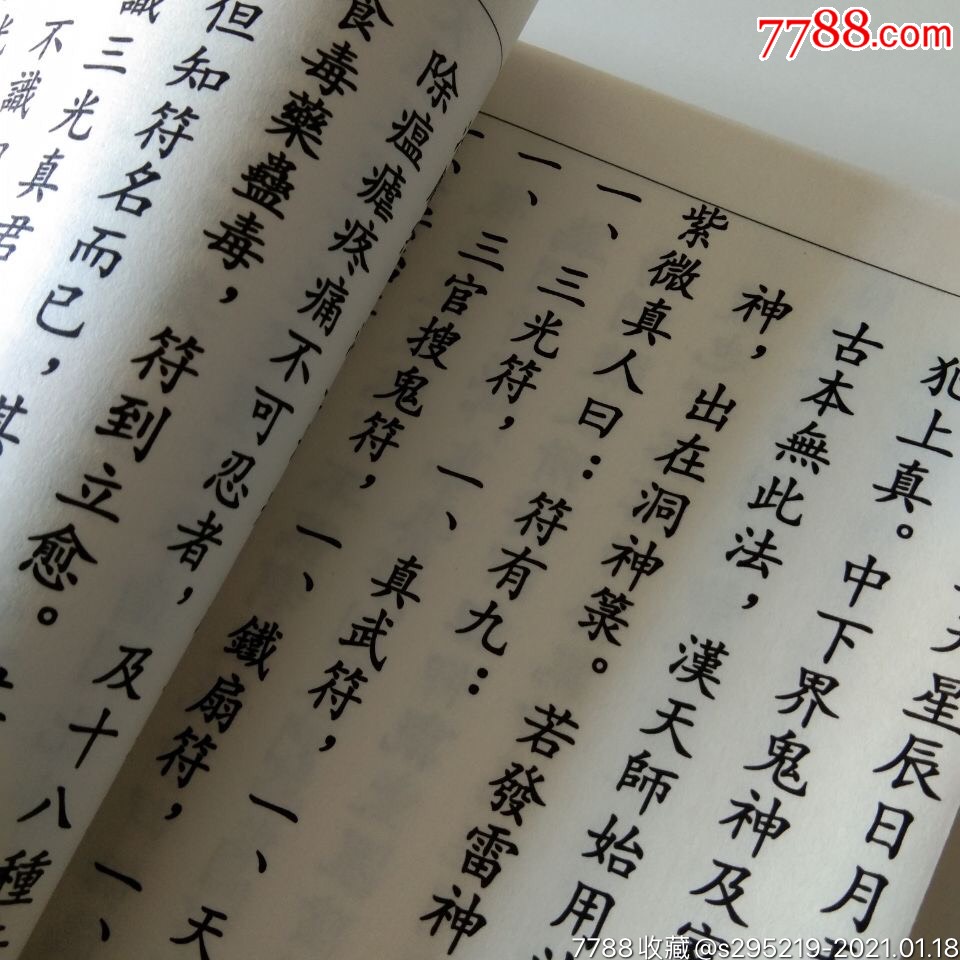 天星辰日月
犯上真。中下界鬼神及
古本無此法，漢天師始用
神，出在洞神篆。若發雷神
紫微真人曰：符有九：
一、三光符，一、真武符，一、天
一、三官搜鬼符，一、鐵扇符，一、
除瘟瘧疼痛不可忍者，及十八種
食毒藥蠱毒，符到立愈。
但知符名而已，其
識三光真君
不識
7788.com
7788收藏@s295219-2021.01.18